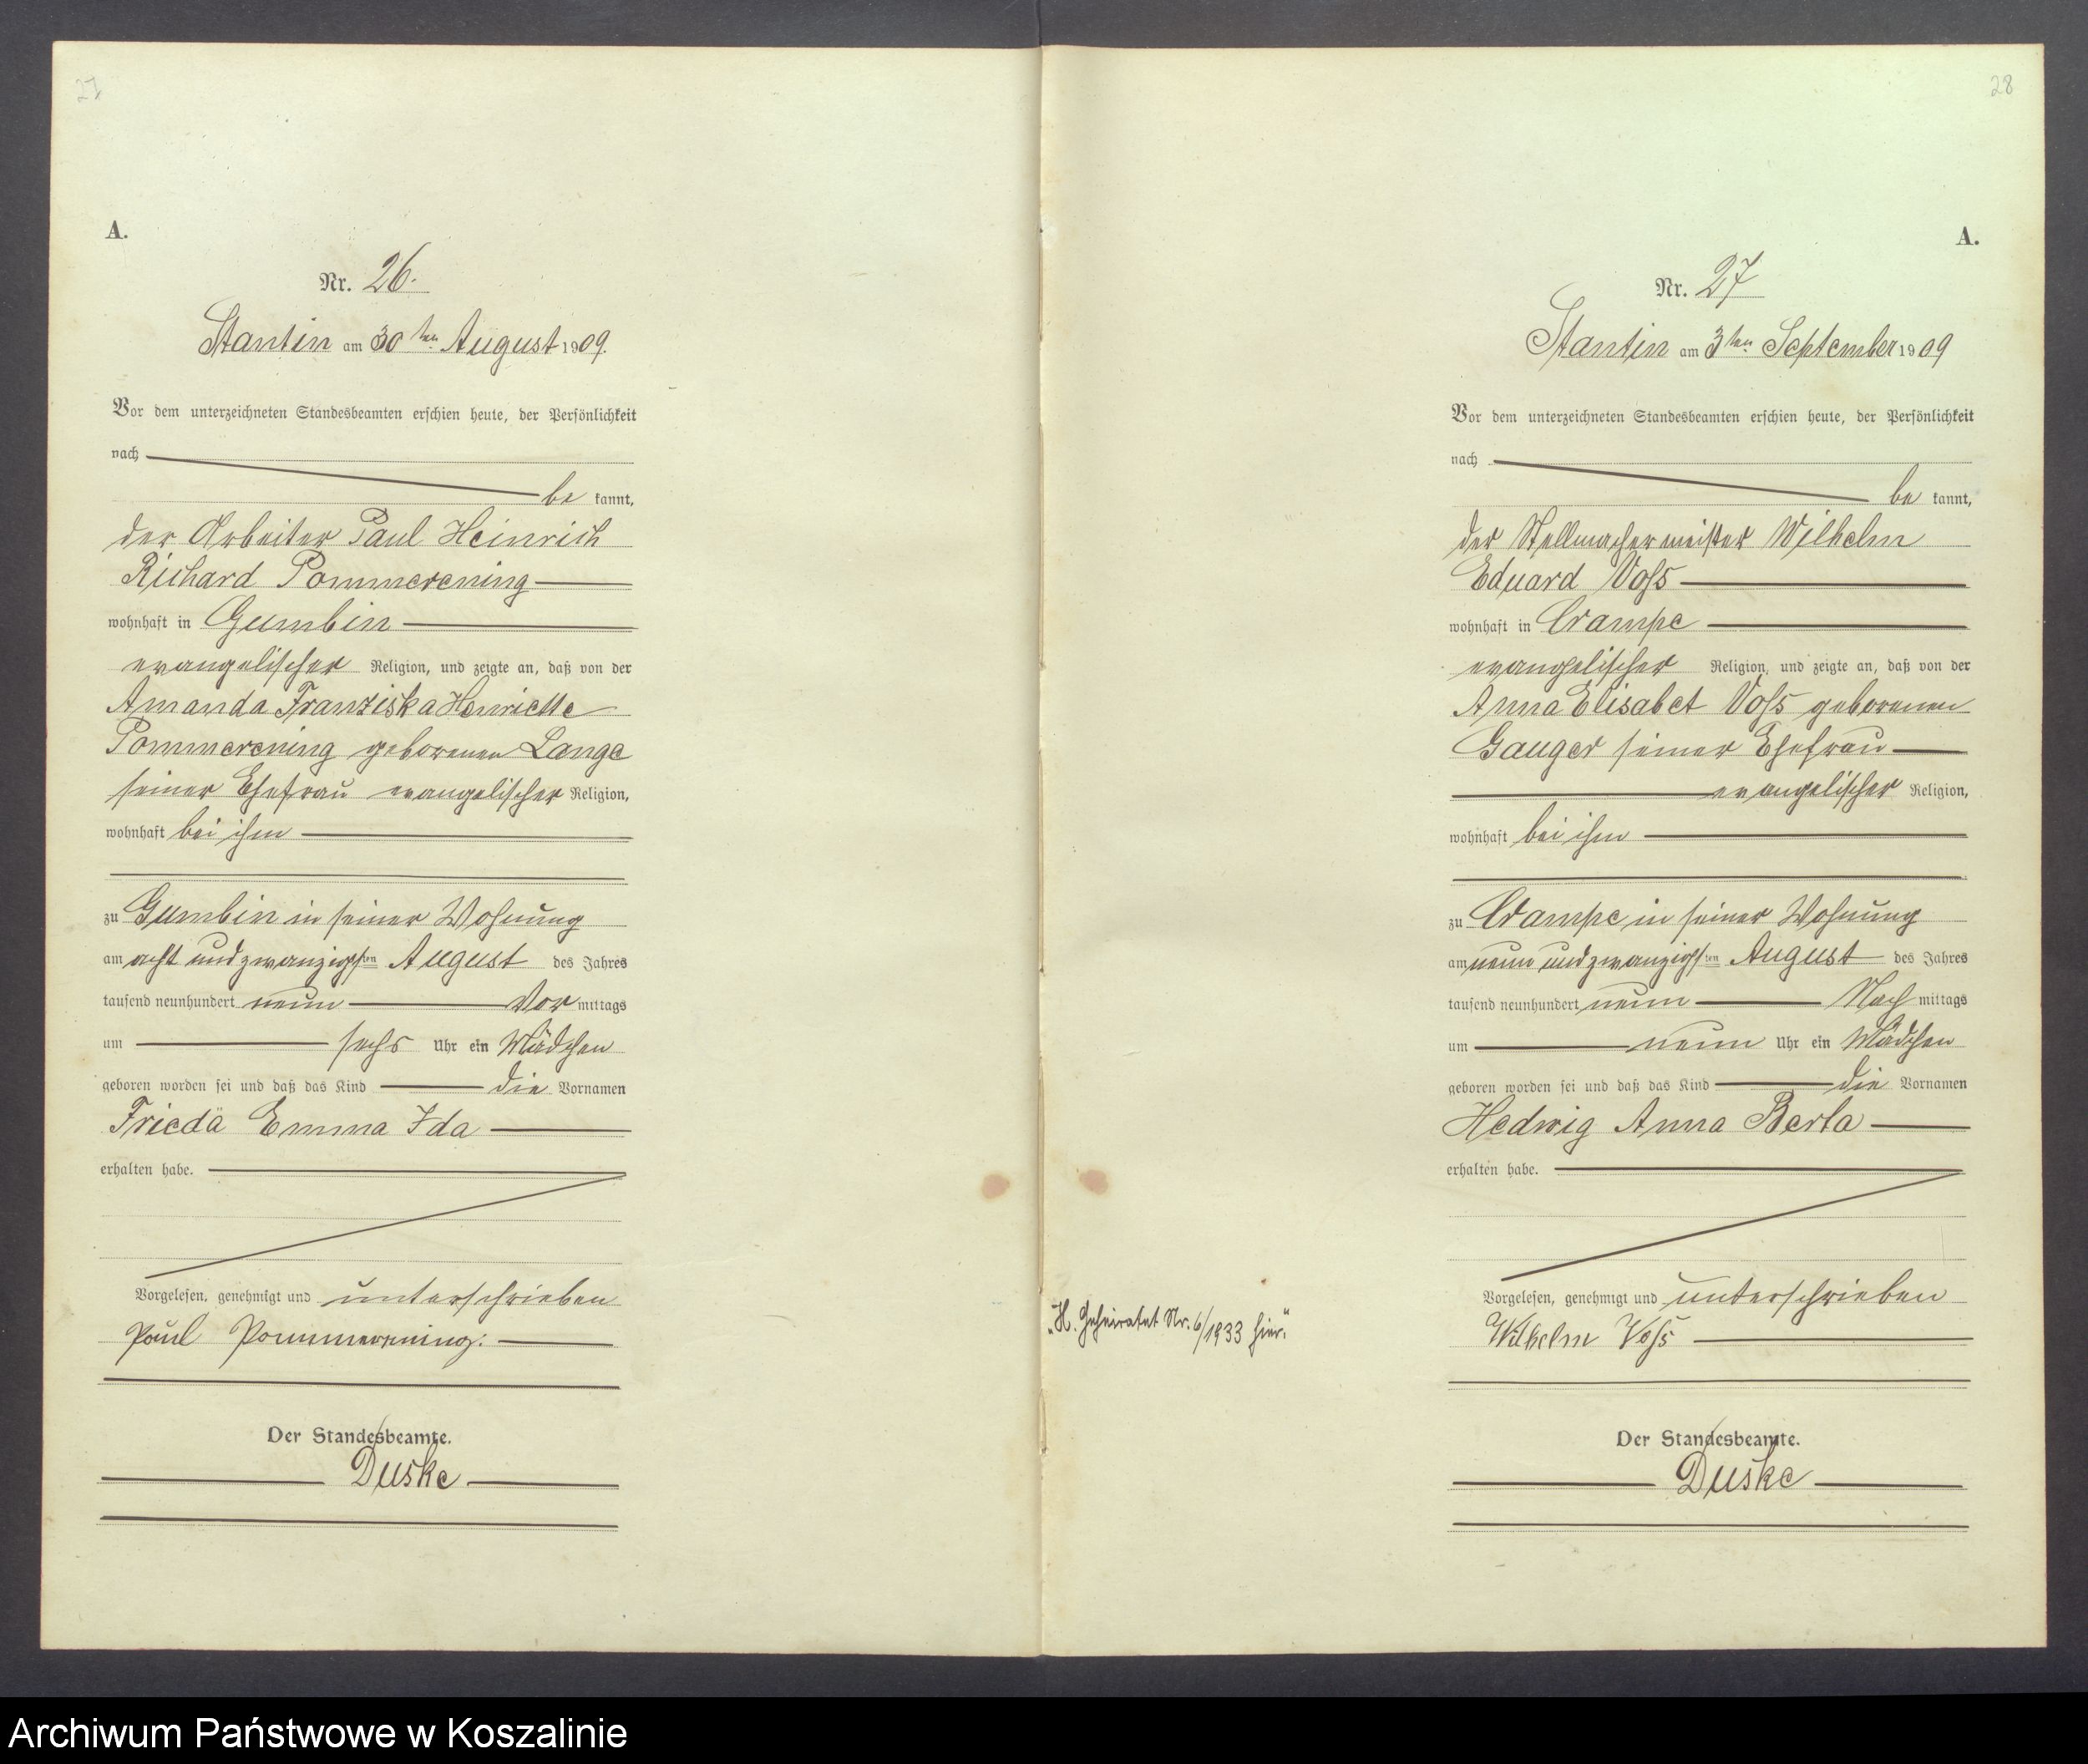 27
A.
Nr. 26.
Stantin am 30ten August 1909.
Vor dem unterzeichneten Standesbeamten erschien heute, der Persönlichkeit
nach
be kannt,
der Arbeiter Paul Heinrich
Richard Pommerening
wohnhaft in Gumbin
evangelischer Religion, und zeigte an, daß von der
Amanda Franziska Henriette
Pommerening geborenen Lange
seiner Ehefrau evangelischer Religion,
wohnhaft bei ihm
zu Gumbin in seiner Wohnung
am acht und zwanzigsten August des Jahres
tausend neunhundert neun Vor mittags
um sechs Uhr ein Mädchen
geboren worden sei und daß das Kind die Vornamen
Frieda Emma Ida
erhalten habe.
Vorgelesen, genehmigt und unterschrieben
Paul Pommerening.
Der Standesbeamte.
Duske
28
A.
Nr. 27
Stantin am 3ten September 1909
Vor dem unterzeichneten Standesbeamten erschien heute, der Persönlichkeit
nach
be kannt,
der Stellmachermeister Wilhelm
Eduard Voss
wohnhaft in Crampe
evangelischer Religion, und zeigte an, daß von der
Anna Elisabet Voss geborenen
Gauger seiner Ehefrau
evangelischer Religion,
wohnhaft bei ihm
zu Crampe in seiner Wohnung
am neun und zwanzigsten August des Jahres
tausend neunhundert neun Nach mittags
um neun Uhr ein Mädchen
geboren worden sei und daß das Kind die Vornamen
Hedwig Anna Berta
erhalten habe.
„H. Geheiratet Nr. 6/1933 hier."
Vorgelesen, genehmigt und unterschrieben
Wilhelm Voss
Der Standesbeamte.
Duske
Archiwum Państwowe w Koszalinie